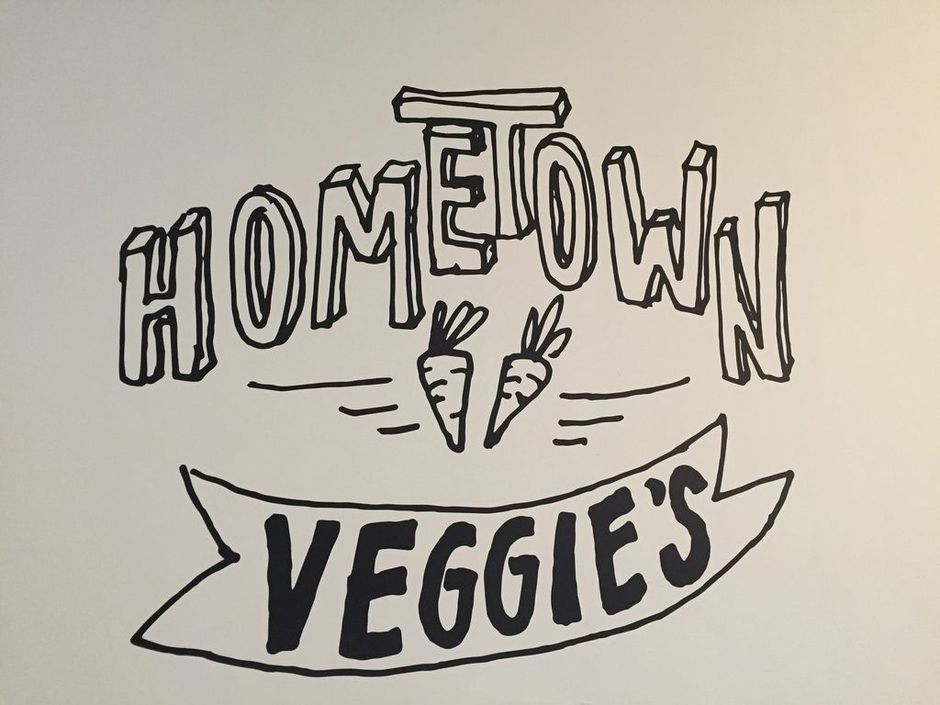 HOMETOWN
VEGGIE'S